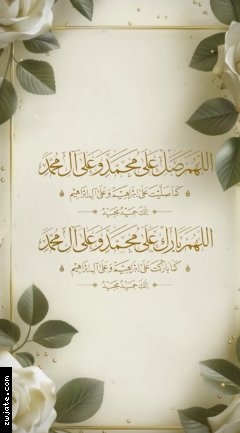 اللهم صل على محمد وعلى آل محمد
كما صليت على إبراهيم وعلى آل إبراهيم
إنك حميد مجيد
اللهم بارك على محمد وعلى آل محمد
كما باركت على إبراهيم وعلى آل إبراهيم
إنك حميد مجيد
zwjate.com